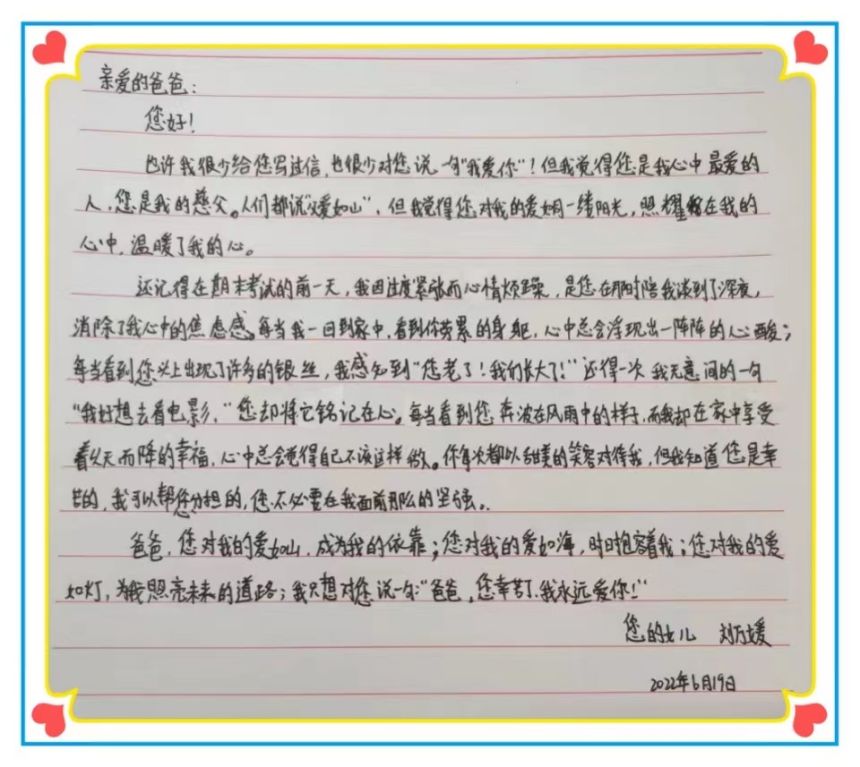 亲爱的爸爸：
您好！
也许我很少给您写过信，也很少对您说一句“我爱你”！但我觉得您是我心中最爱的
人，您是我的慈父。人们都说“父爱如山”，但我觉得您对我的爱如同一缕阳光，照耀在我的
心中，温暖了我的心。
还记得在期末考试的前一天，我因过度紧张而心情烦躁，是您在那时陪我谈到了深夜，
消除了我心中的焦虑感。每当我一回到家中，看到你劳累的身躯，心中总会浮现出一阵阵的心酸；
每当看到您头上出现了许多的银丝，我感知到“您老了！我们长大了！”还得一次我无意间的一句
“我好想去看电影，”您却将它铭记在心。每当看到您奔波在风雨中的样子，而我却在家中享受
着从天而降的幸福，心中总会觉得自己不该这样做。你每次都以甜美的笑容对待我，但我知道您是辛
苦的，我可以帮您分担的，您不必要在我面前那么的坚强。
爸爸，您对我的爱如山，成为我的依靠；您对我的爱如海，时时抱容着我；您对我的爱
如灯，为我照亮未来的道路；我只想对您说一句：“爸爸，您幸苦了，我永远爱你！”
您的女儿 刘万媛
2022年6月19日